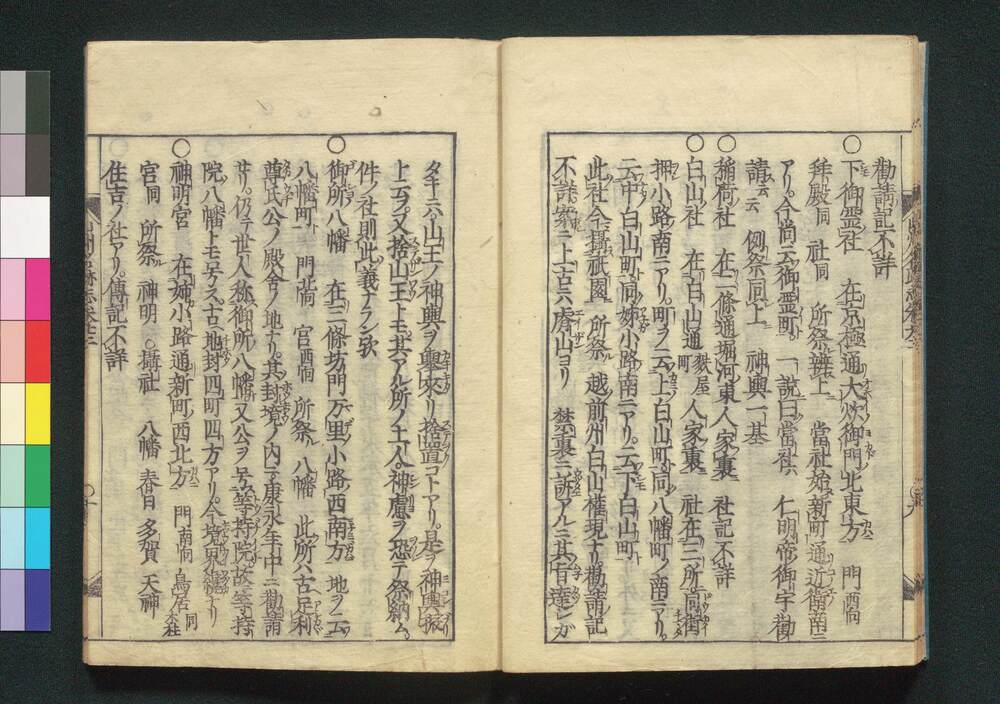 勧請記不詳
○下御霊社 在京極通大炊御門北東方 門西向
拜殿同 社同 所祭辨上 當社始新町通近衛南ニ
アリ。今尚云御霊町。一說曰當社ハ 仁明帝御宇勧
請ト云云 例祭同上 神輿一基
○稲荷社 在一條通堀河東人家裏 社記不詳
○白山社 在白山通麩屋町人家裏 社在三所同街
押小路南ニアリ。町ヲ云上白山町同八幡町ノ南ニアリ。
云中白山町同姉小路南ニアリ。云下白山町
此社今攝祇園 所祭ル 越前州白山権現ナリ。勧請記
不詳 ニ上古六 山ヨリ 禁裏ニ訴アルニ其有達シガ
タキニハ山王ノ神輿ヲ舉來リ捨置コトアリ。是ヲ神輿振
上云フ又捨山王トモ。其アル所ノ土人神慮ヲ恐テ祭納ム。
件ノ社則此義ナラン歟
○御所八幡 在三條坊門万里小路西南方 地ヲ云
八幡町ト 門北向 宮西向 所祭ル 八幡 此所ハ古足利
尊氏公ノ殿舎ノ地ナリ。其封境ノ内ニテ康永年中ニ勧請
ナリ。仍テ世人称御所八幡又公ヲ号等持院故等持
院八幡トモ号ス古ノ地封四町四方アリ。今境界 ナリ
○神明宮 在姉小路通新町西北方 門南向 鳥居同木柱
宮同 所祭ル 神明 ○攝社 八幡 春日 多賀 天神
住吉ノ社アリ。傳記不詳